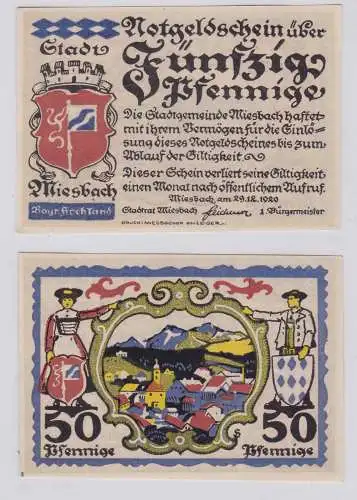 Notgeldschein über
Stadt
Fünfzig
Pfennige
Die Stadtgemeinde Miesbach haftet
mit ihrem Vermögen für die Einlö-
sung dieses Notgeldscheines bis zum
Ablauf der Giltigkeit.
Dieser Schein verliert seine Giltigkeit
einen Monat nach öffentlichem Aufruf.
Miesbach
Miesbach, am 29.12.1920
Bayr. Hochland
Stadtrat Miesbach
1. Bürgermeister
DRUCK: MIESBACHER ANZEIGER
50
Pfennige
50
Pfennige